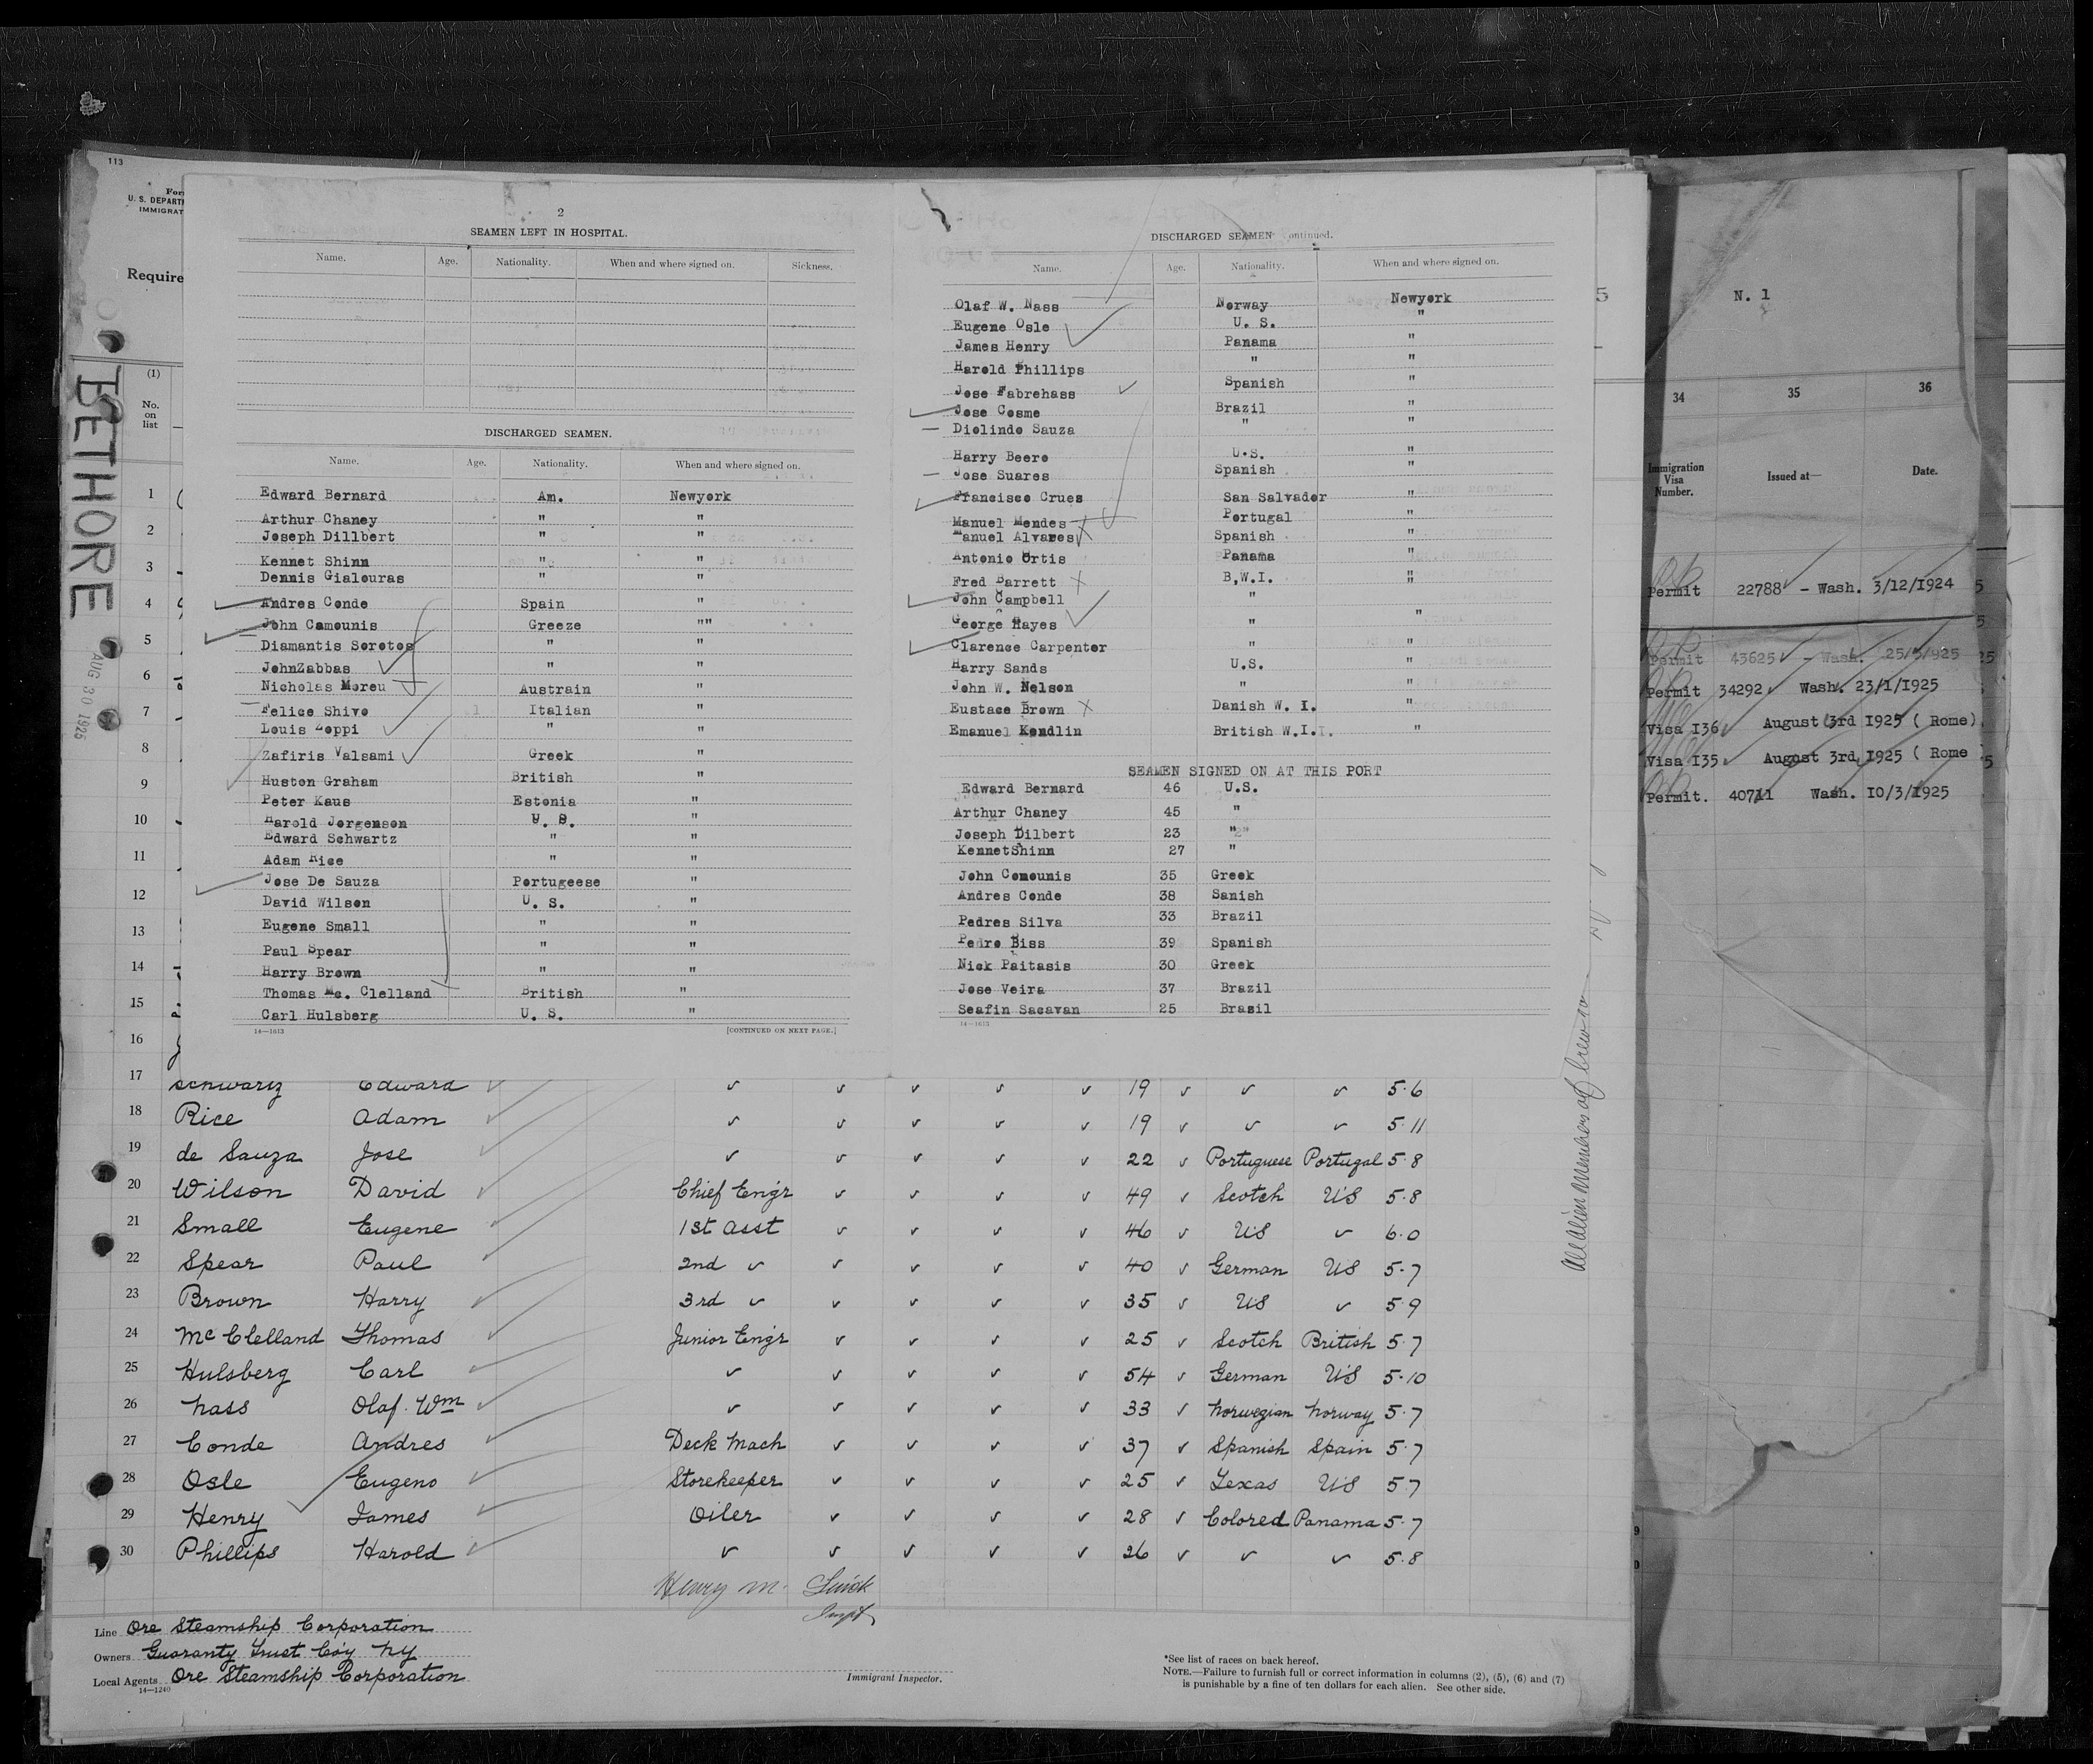 113
U. S. DEPARTM
IMMIGRAT
Require
(1)
No.
on
list
BETHORE
AUG 30 1925
2
SEAMEN LEFT IN HOSPITAL.
Name. Age. Nationality. When and where signed on. Sickness.
DISCHARGED SEAMEN.
Name. Age. Nationality. When and where signed on.
Edward Bernard Am. Newyork
Arthur Chaney " "
Joseph Dillbert " "
Kennet Shinn " "
Dennis Gialouras " "
Andres Conde Spain "
John Comounis Greeze ""
Diamantis Sorotos " "
JohnZabbas " "
Nicholas Moreu Austrain "
Felice Shivo Italian "
Louis Zoppi " "
Zafiris Valsami Greek "
Huston Graham British "
Peter Kaus Estonia "
Harold Jorgenson U. S. "
Edward Schwartz " "
Adam Rice " "
Jose De Sauza Portugeese "
David Wilson U. S. "
Eugene Small " "
Paul Spear " "
Harry Brown " "
Thomas Mc. Clelland British "
Carl Hulsberg U. S. "
14—1613 [CONTINUED ON NEXT PAGE.]
DISCHARGED SEAMEN ontinued.
Name. Age. Nationality. When and where signed on.
Olaf W. Nass Norway Newyork
Eugene Osle U. S. "
James Henry Panama "
Harold Phillips " "
Jose Fabrehass Spanish "
Jose Cosme Brazil "
Diolindo Sauza " "
Harry Beere U.S. "
Jose Suares Spanish "
Francisco Crues San Salvador "
Manuel Mendes Portugal "
Manuel Alvares Spanish "
Antonio Ortis Panama "
Fred Barrett B,W.I. "
John Campbell "
George Hayes " "
Clarence Carpenter " "
Harry Sands U.S. "
John W. Nelson " "
Eustace Brown Danish W. I. "
Emanuel Kendlin British W.I. "
SEAMEN SIGNED ON AT THIS PORT
Edward Bernard 46 U.S.
Arthur Chaney 45 "
Joseph Dilbert 23 "
KennetShinn 27 "
John Comounis 35 Greek
Andres Conde 38 Sanish
Pedres Silva 33 Brazil
Pedro Biss 39 Spanish
Nick Paitasis 30 Greek
Jose Veira 37 Brazil
Seafin Sacavan 25 Brasil
14—1613
1
2
3
4
5
6
7
8
9
10
11
12
13
14
15
16
17 Schwartz Edward 19 5·6
18 Rice Adam 19 5·11
19 de Sauza Jose 22 Portuguese Portugal 5·8
20 Wilson David Chief Engr 49 Scotch US 5·8
21 Small Eugene 1st Asst 46 US 6·0
22 Spear Paul 2nd 40 German US 5·7
23 Brown Harry 3rd 35 US 5·9
24 McClelland Thomas Junior Engr 25 Scotch British 5·7
25 Hulsberg Carl 54 German US 5·10
26 Nass Olaf. Wm 33 Norwegian Norway 5·7
27 Conde Andres Deck Mach 37 Spanish Spain 5·7
28 Osle Eugeno Storekeeper 25 Texas US 5·7
29 Henry James Oiler 28 Colored Panama 5·7
30 Phillips Harold 26 5·8
Henry M.
Line Ore Steamship Corporation
Owners Guaranty Trust Co'y NY
Local Agents Ore Steamship Corporation
14—1240
Immigrant Inspector.
*See list of races on back hereof.
NOTE.—Failure to furnish full or correct information in columns (2), (5), (6) and (7)
is punishable by a fine of ten dollars for each alien. See other side.
All alien members of crew
N. 1
34 35 36
Immigration
Visa
Number.
Issued at—
Date.
Permit 22788 - Wash. 3/12/1924
Permit 43625 - Wash. 25/5/925
Permit 34292 Wash. 23/1/1925
Visa I36 August 3rd 1925 ( Rome)
Visa I35 August 3rd 1925 ( Rome
Permit. 40711 Wash. 10/3/1925